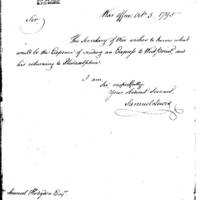 War office Oct 5. 1795
Sir,
The Secretary of War wishes to know what
would be the Expence of sending an Express to West Point, and
his returning to Philadelphia.
I am
Sir respectfully
Your Obedient Servant
Samuel Lewis
Samuel Hodgdon Esqr